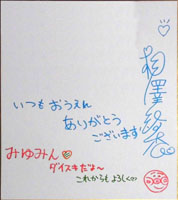 いつもおうえん
ありがとう
ございます!
みゆみん
ダイスキだよ〜
これからもよろしく